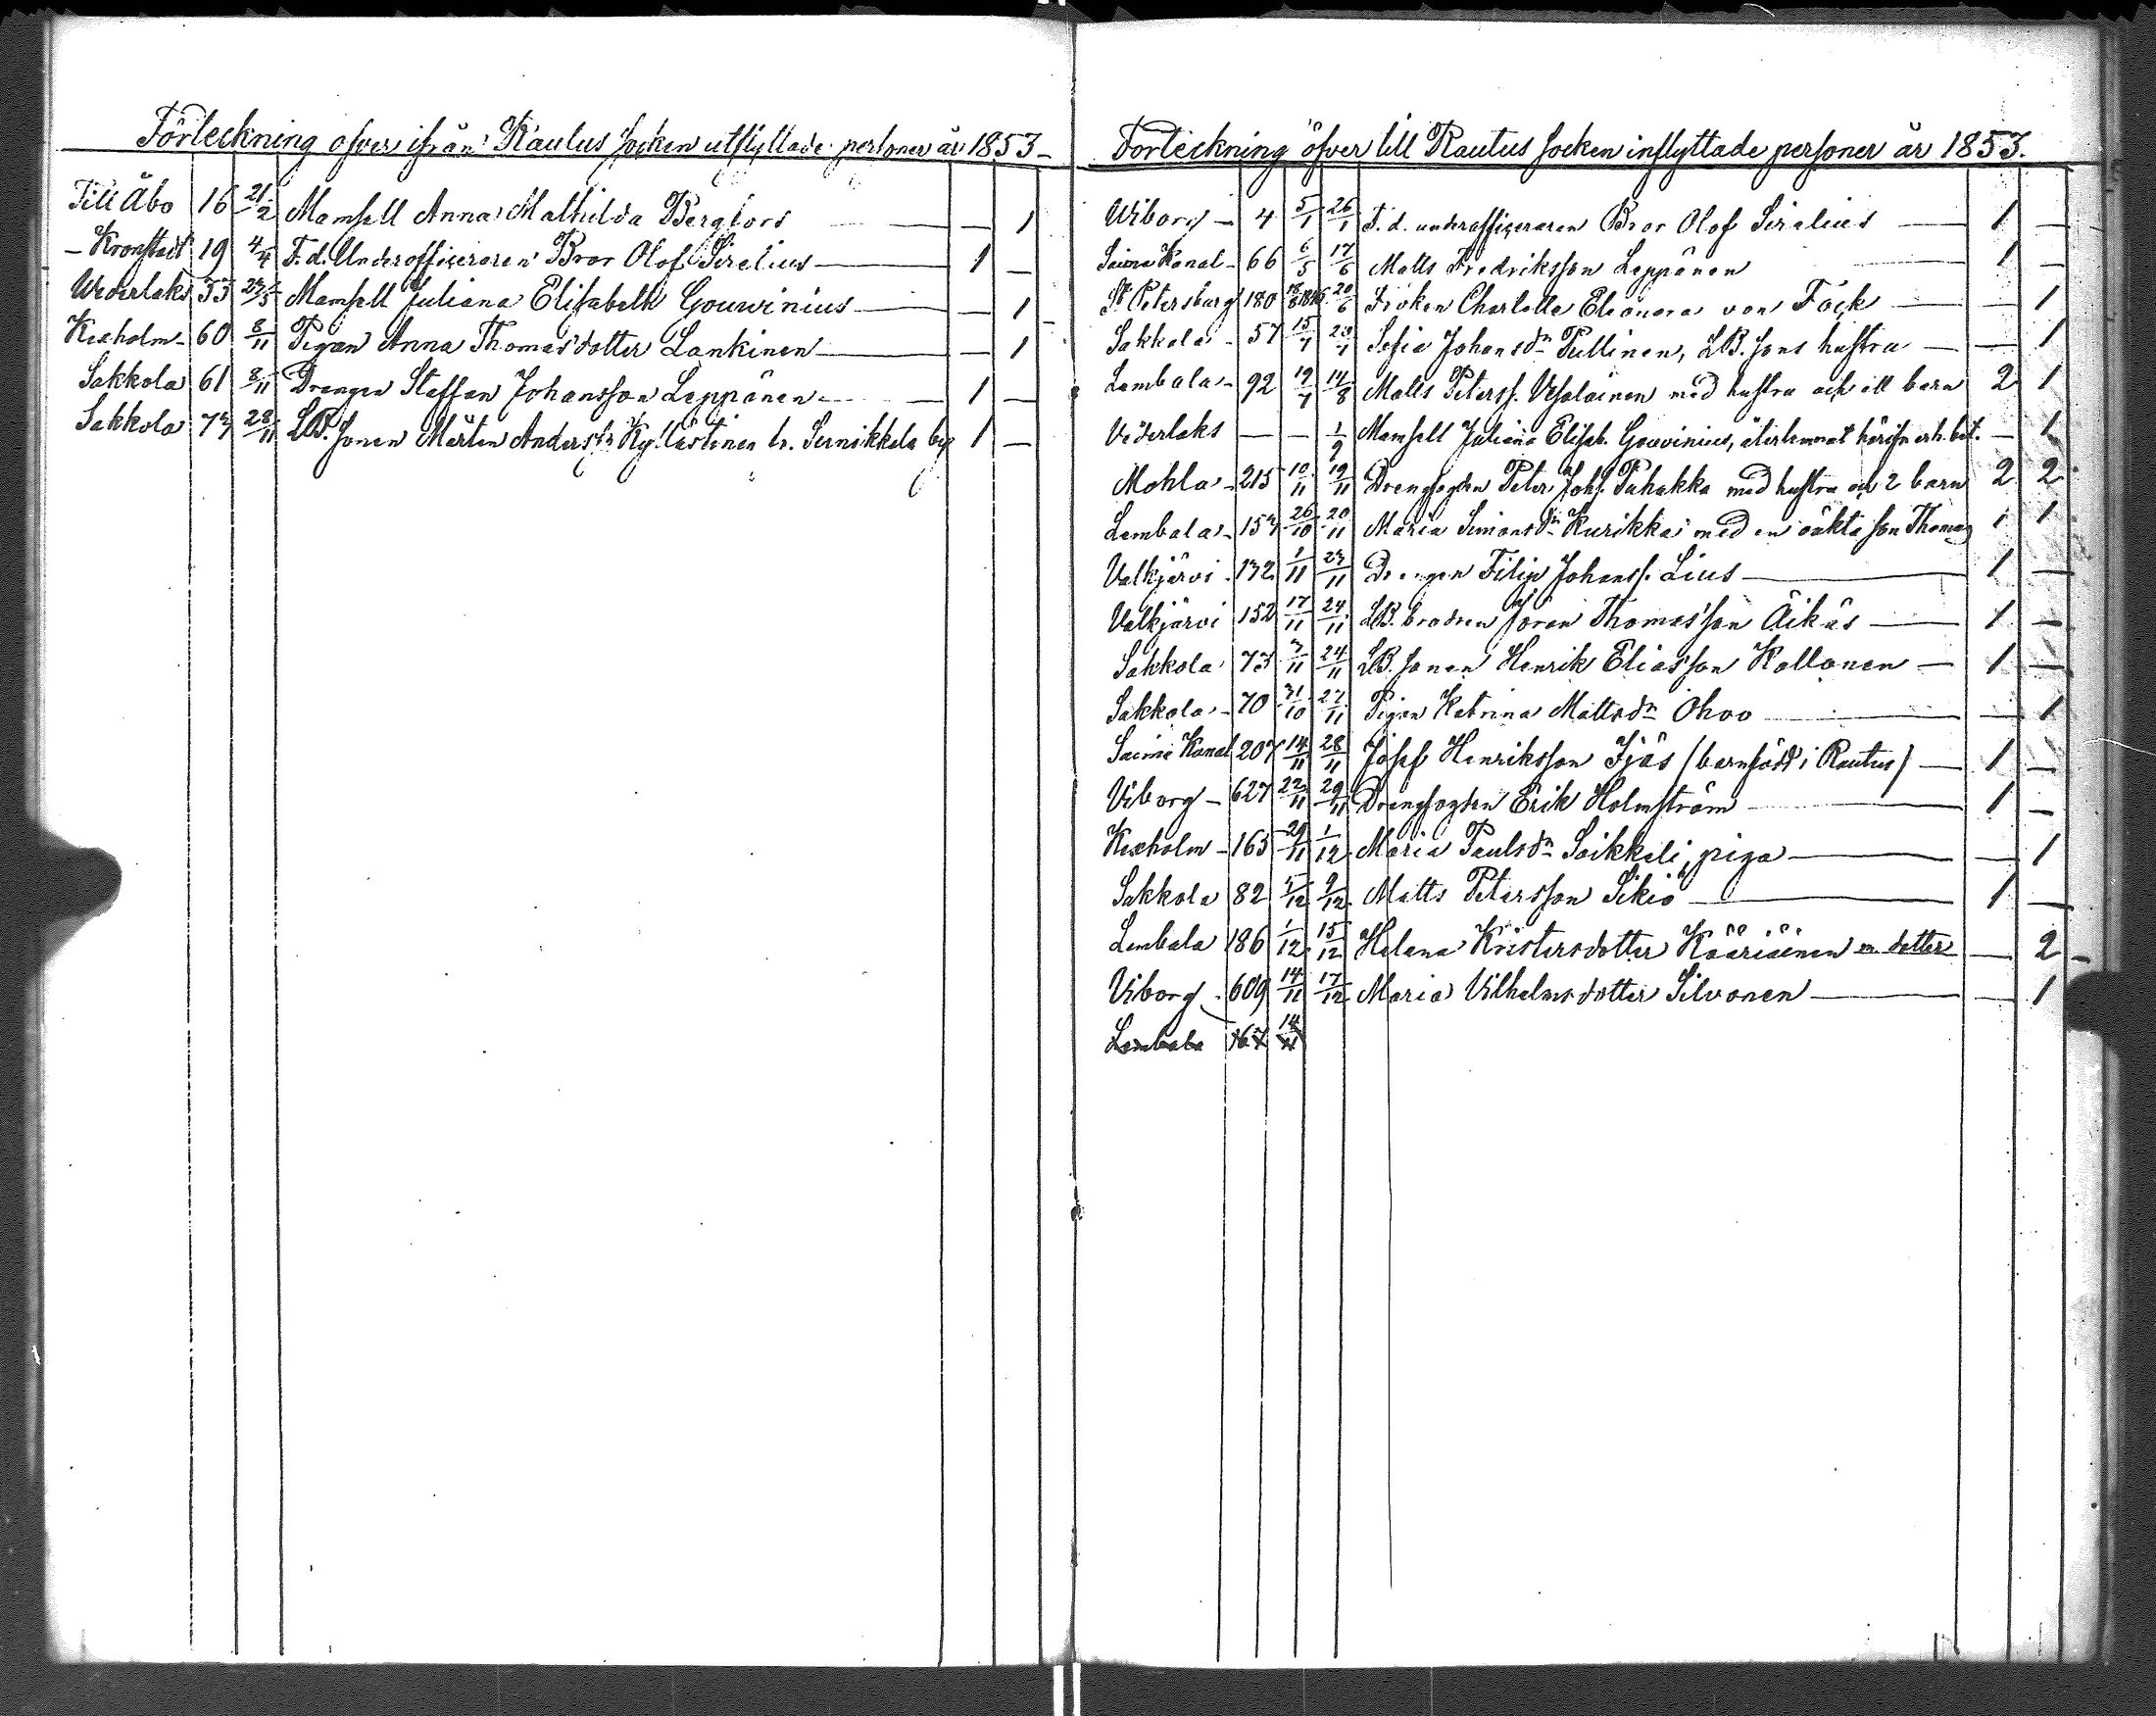 Förteckning öfver ifrån Rautus socken utflyttade personer år 1853
Till Åbo 16 21/2 Mamsell Anna Mathilda Bergfors — 1
— Kronstadt 19 4/4 F.d. Underofficeraren Bror Olof Sirelius — 1 —
Wederlaks 33 Mamsell Juliana Elisabeth Gouvinius — — 1
Kexholm 60 8/11 Pigan Anna Thomasdotter Lankinen — — 1
Sakkola 61 8/11 Drengen Staffan Johansson Leppänen — 1 —
Sakkola 73 28/11 LB. sonen Mårten Anders 1 —
Förteckning öfver till Rautus socken inflyttade personer år 1853.
Wiborg — 4 5/1 26/1 F. d. underofficeraren Bror Olof Sirelius — 1 —
Saima Kanal — 66 6/5 17/6 Matts Fredriksson Leppänen 1 —
St Petersburg 180 20/6 Fröken Charlotte Eleonora von Fock — — 1
Sakkola — 57 Sofia Johansdr Pullinen, LB. sons hustru — — 1
Lembala — 92 14/8 Matts Peterss. Vesalainen med hustru och ett barn 2 1
Vederlaks — — 1/9 Mamsell Juliana Elisab. Gouvinius, återlemnat härifrån erh. bet. — 1
Mohla — 215 10/11 19/11 Drengfogden Peter Johs. Pahakka med hustru och 2 barn 2 2
Lembala — 153 26/10 20/11 Maria Simonsdr Kurikka med en oäkta son Thomas 1 1
Valkjärvi 132 1/11 23/11 Drengen Filip Johanss. Lius — 1 —
Valkjärvi 152 17/11 24/11 LB. brodren Jöran Thomasson Äikäs — 1 —
Sakkola 73 3/11 24/11 LB. sonen Henrik Eliasson Kollanen — 1 —
Sakkola — 70 31/10 27/11 Pigan Katrina Mattsdr Ohvo — — 1
Saima Kanal 207 14/11 28/11 Josef Henriksson Ijäs (barnfödd i Rautus) — 1 —
Viborg — 627 22/11 29/11 Drengfogden Erik Holmström — 1 —
Kexholm — 163 29/11 1/12 Maria Paulsdr Saikkeli, piga — — 1
Sakkola 82 9/12 Matts Petersson Sikiö — 1 —
Lembala 186 1/12 15/12 Helena Kristersdotter Kääriäinen m. dotter — 2 —
Viborg 609 14/11 17/12 Maria Vilhelmsdotter Silvonen — — 1
Lembala 167 14/11